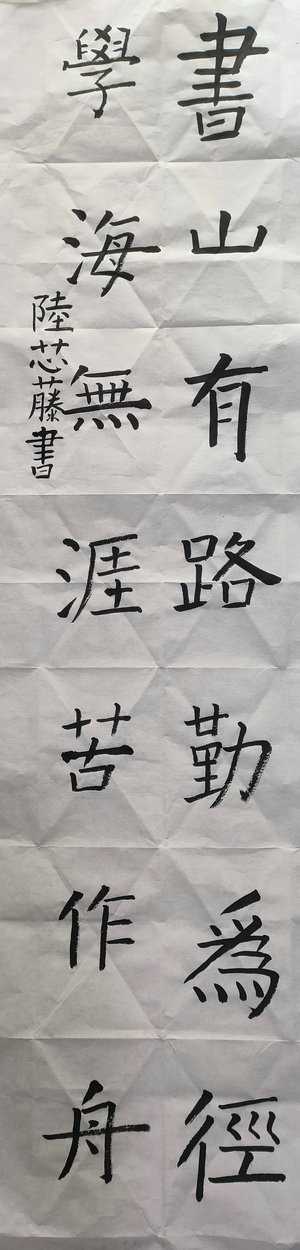 書山有路勤為徑
學海無涯苦作舟
陸芯藤書